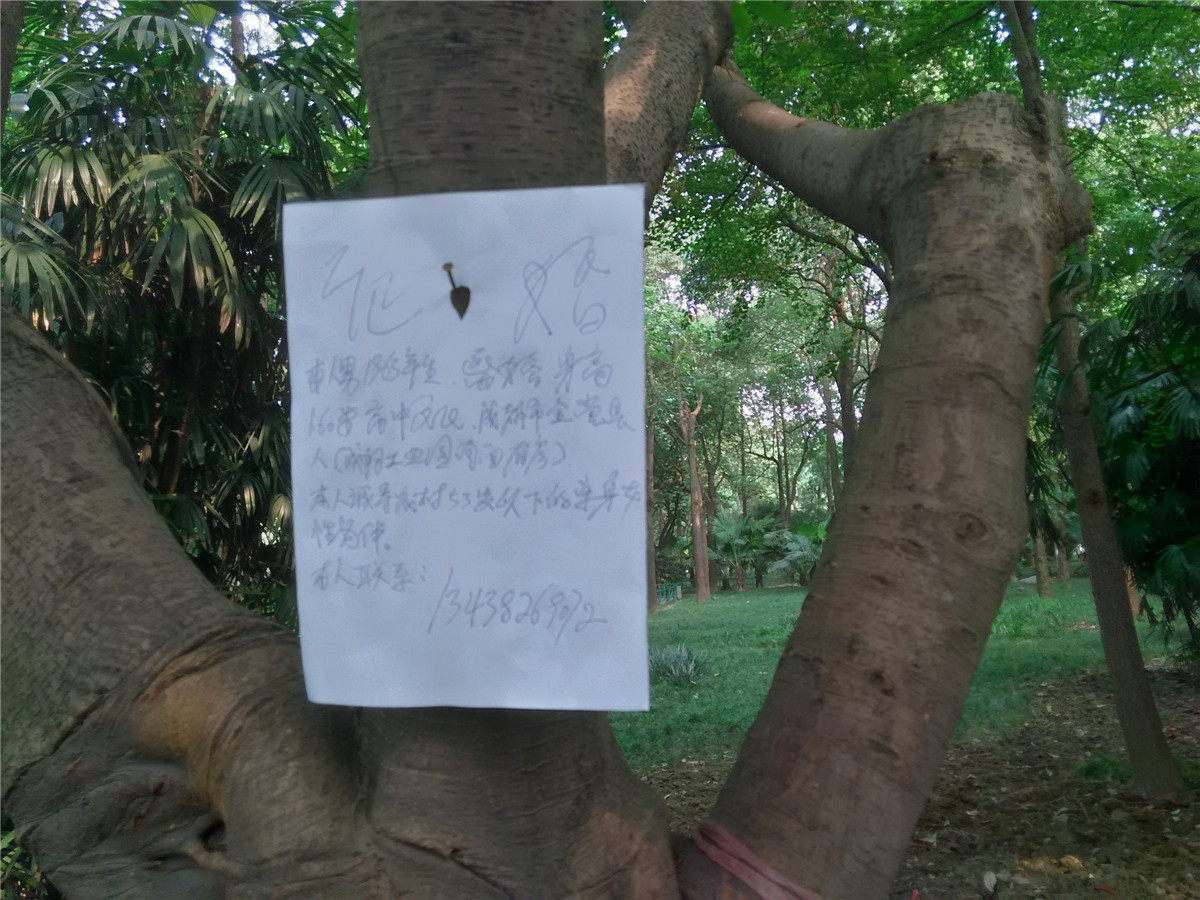 征 婚
本人男 1963年生. 离婚 身高
160 高中文化. 成都市金堂县
人(成都工业园区有房)
本人诚寻 53岁以下的单身女
性为伴.
本人联系:
13438269072